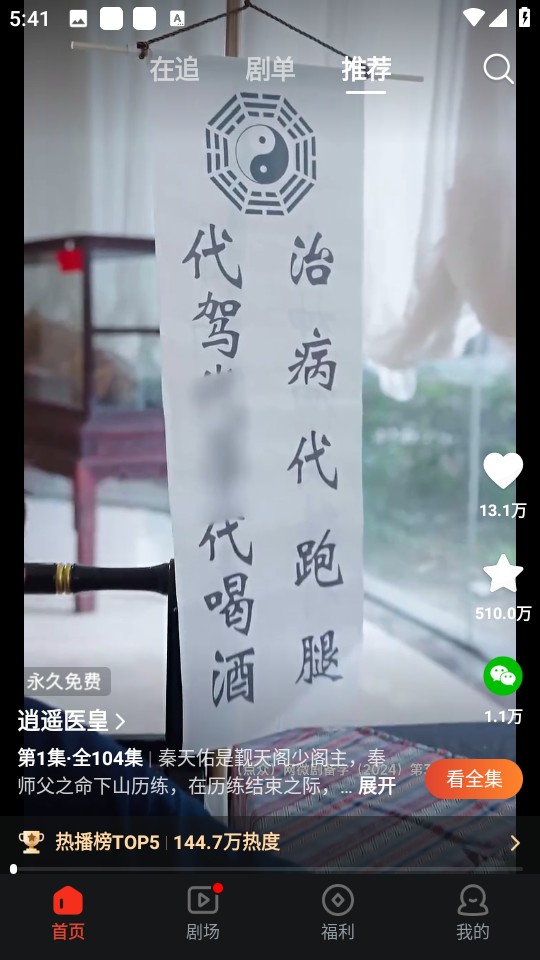 5:41
A
在追 剧单 推荐
治病代跑腿
代驾
代喝酒
13.1万
510.0万
1.1万
永久免费
逍遥医皇
第1集·全104集 | 秦天佑是觐天阁少阁主，奉
师父之命下山历练，在历练结束之际，... 展开
(点众）网微剧备字（2024）第
看全集
热播榜TOP5 | 144.7万热度
首页 剧场 福利 我的